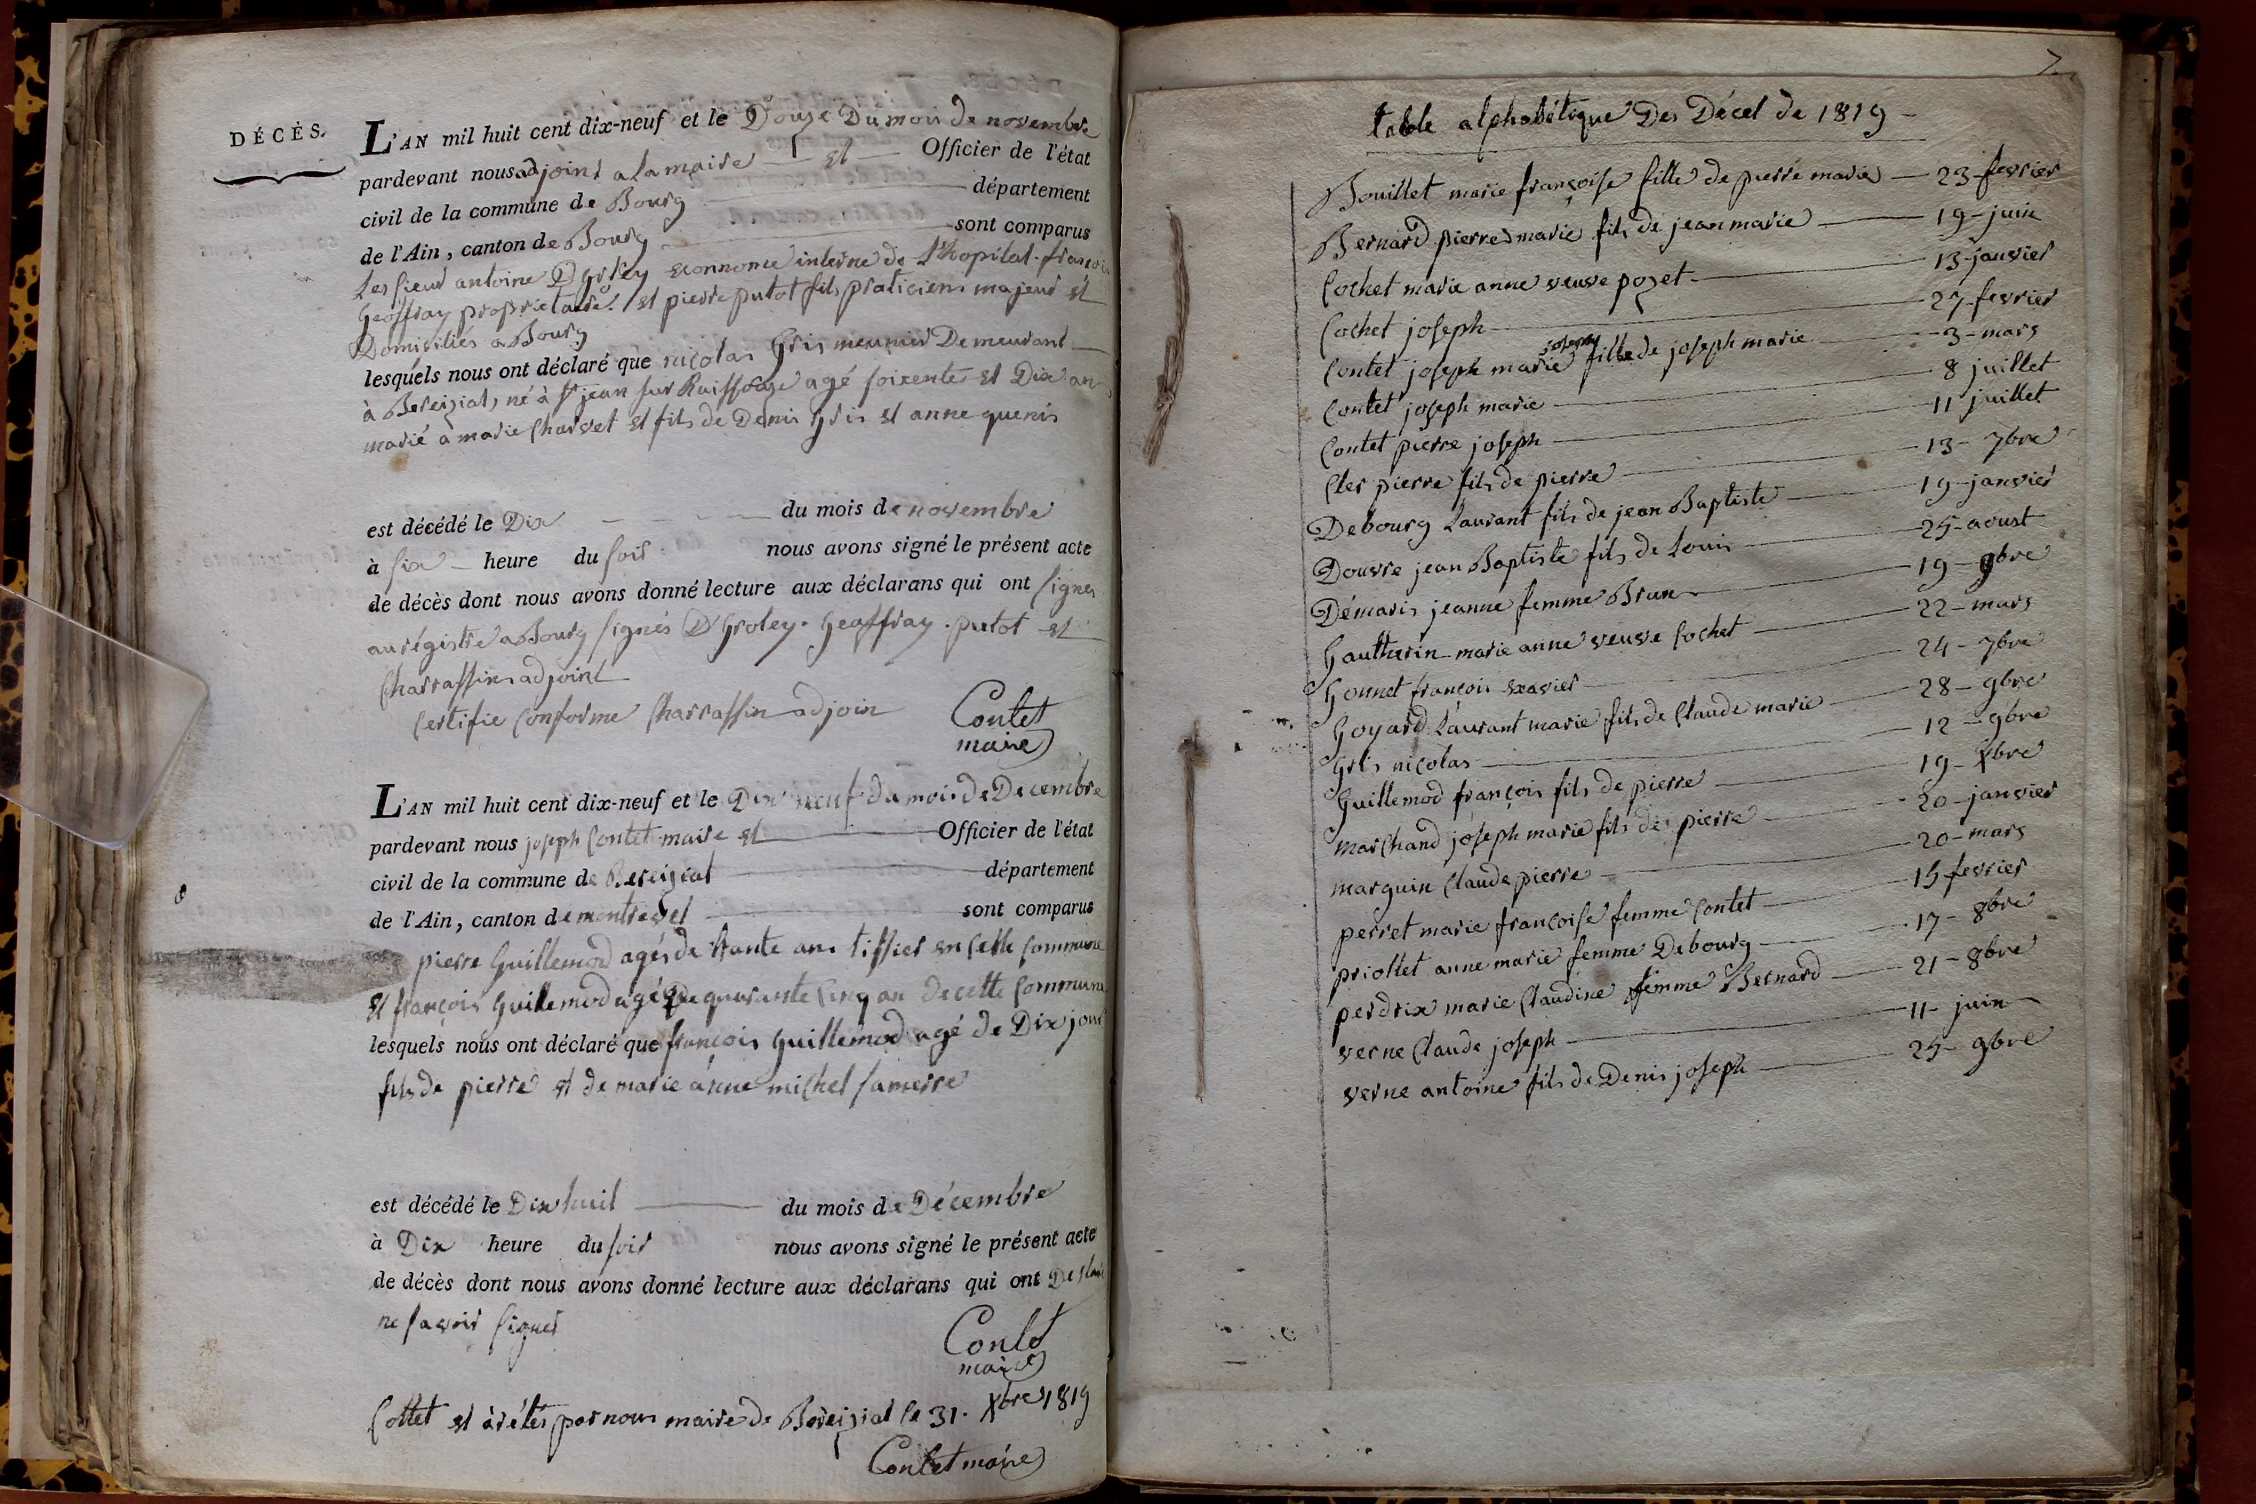 DÉCÈS.
L'AN mil huit cent dix-neuf et le Douze Du mois de novembre
pardevant nous adjoint a la maire et Officier de l'état
civil de la commune de Bourg département
de l'Ain, canton de Bourg sont comparus
Les sieur antoine D'Groley econnome interne de L'hopital. françois
Geoffray proprietaire. et pierre putot fils praticiens majeur et
Domiciliés a Bourg
lesquels nous ont déclaré que nicolas Gris meunier Demeurant
à Bereiziat, né à st jean sur Raissouze agé soixente et Dix an
marié à marie Charvet et fils de Denis Gris et anne quenis
est décédé le Dix du mois de novembre
à six heure du soir nous avons signé le présent acte
de décès dont nous avons donné lecture aux déclarans qui ont signes
au régistre a Bourg signés D'Groley. Geoffray. putot et
Charrassin adjoint
Certifie Conforme Charrassin adjoin
Contet
maire
L'AN mil huit cent dix-neuf et le Dix neuf du mois de Decembre
pardevant nous joseph Contet maire et Officier de l'état
civil de la commune de Bereiziat département
de l'Ain, canton de montrevel sont comparus
pierre Guillemod agés de trante ans tissier en cette Commune
et françois Guillemod agés de quarante Cinq an de cette Commune
lesquels nous ont déclaré que françois Guillemod agé de Dix jour
fils de pierre et de marie anne michel sa merre
est décédé le Dix huit du mois de Décembre
à Dix heure du soir nous avons signé le présent acte
de décès dont nous avons donné lecture aux déclarans qui ont
ne savoir signer
Contet
maire
Cottet et àrétés par nous maire de Bereiziat le 31. Xbre 1819
Contet maire
7
table alphabétique Des Décel de 1819
Bouillet marie françoise fille de pierre marie 23 fevrier
Bernard pierre marie fils de jean marie 19 - juin
Cochet marie anne veuve pozet 13 - janvier
Cochet joseph 27 - fevrier
joseph
Contet joseph marie fille de joseph marie 3 - mars
Contet joseph marie 8 juillet
Contet pierre joseph 11 juillet
Cler pierre fils de pierre 13 - 7bre
Debourg Laurant fils de jean Baptiste 19 - janvier
Douvre jean Baptiste fils de Louis 25 - aoust
Démaris jeanne femme Brun 19 - 9bre
Gautherin marie anne veuve Cochet 22 - mars
Gonnet françois xavier 24 - 7bre
Goyard Laurant marie fils de Claude marie 28 - 9bre
Gris nicolas 12 - 9bre
Guillemod françois fils de pierre 19 - Xbre
marChand joseph marie fils de pierre 20 - janvier
marguin Claude pierre 20 - mars
perret marie francoise femme Contet 15 fevrier
priollet anne marie femme Debourg 17 - 8bre
perdrix marie Claudine femme Bernard 21 - 8bre
verne Claude joseph 11 - juin
verne antoine fils de Denis joseph 25 - 9bre